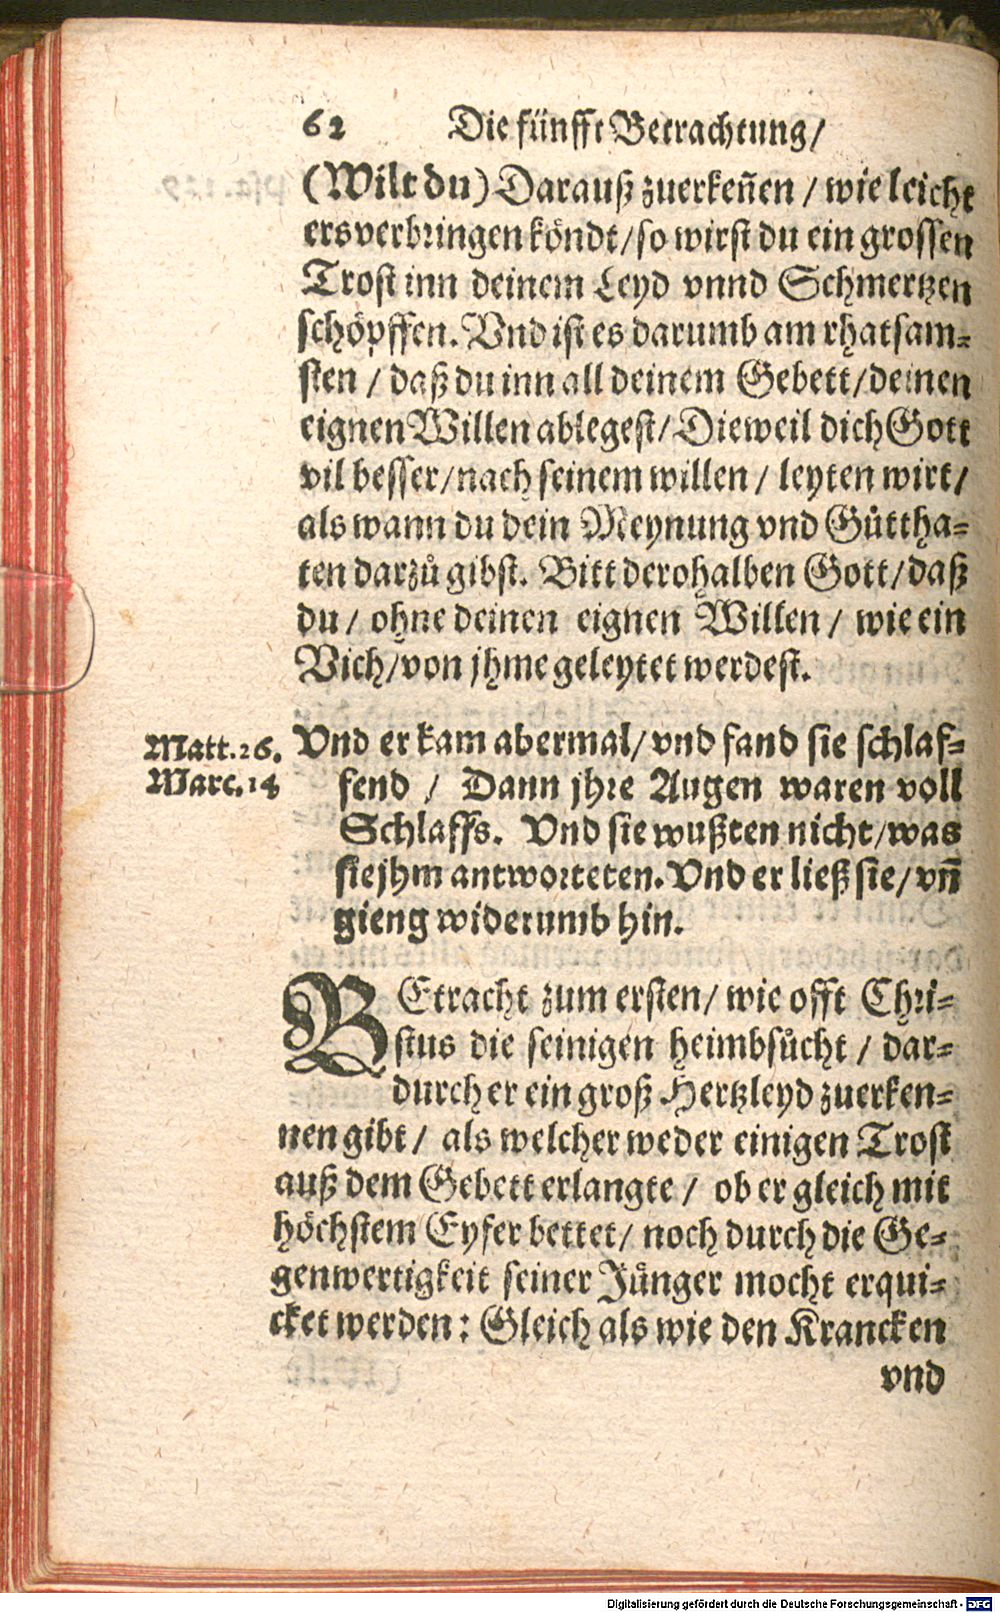 62 Die fünfft Betrachtung/
(Wilt du) Darauß zuerkeñen / wie leicht
ers verbringen köndt/so wirst du ein grossen
Trost inn deinem Leyd vnnd Schmertzen
schöpffen. Vnd ist es darumb am rhatsam=
sten / daß du inn all deinem Gebett/deinen
eignen Willen ablegest/Dieweil dich Gott
vil besser/nach seinem willen / leyten wirt/
als wann du dein Meynung vnd Gůttha=
ten darzů gibst. Bitt derohalben Gott/daß
du/ ohne deinen eignen Willen/ wie ein
Vich/von jhme geleytet werdest.
Matt.26.
Marc.14
Vnd er kam abermal/vnd fand sie schlaf=
fend / Dann jhre Augen waren voll
Schlaffs. Vnd sie wußten nicht/was
sie jhm antworteten. Vnd er ließ sie/vñ
gieng widerumb hin.
BEtracht zum ersten/ wie offt Chri=
stus die seinigen heimbsůcht / dar=
durch er ein groß Hertzleyd zuerken=
nen gibt/ als welcher weder einigen Trost
auß dem Gebett erlangte/ ob er gleich mit
höchstem Eyfer bettet/ noch durch die Ge=
genwertigkeit seiner Jünger mocht erqui=
cket werden: Gleich als wie den Krancken
vnd
Digitalisierung gefördert durch die Deutsche Forschungsgemeinschaft - DFG